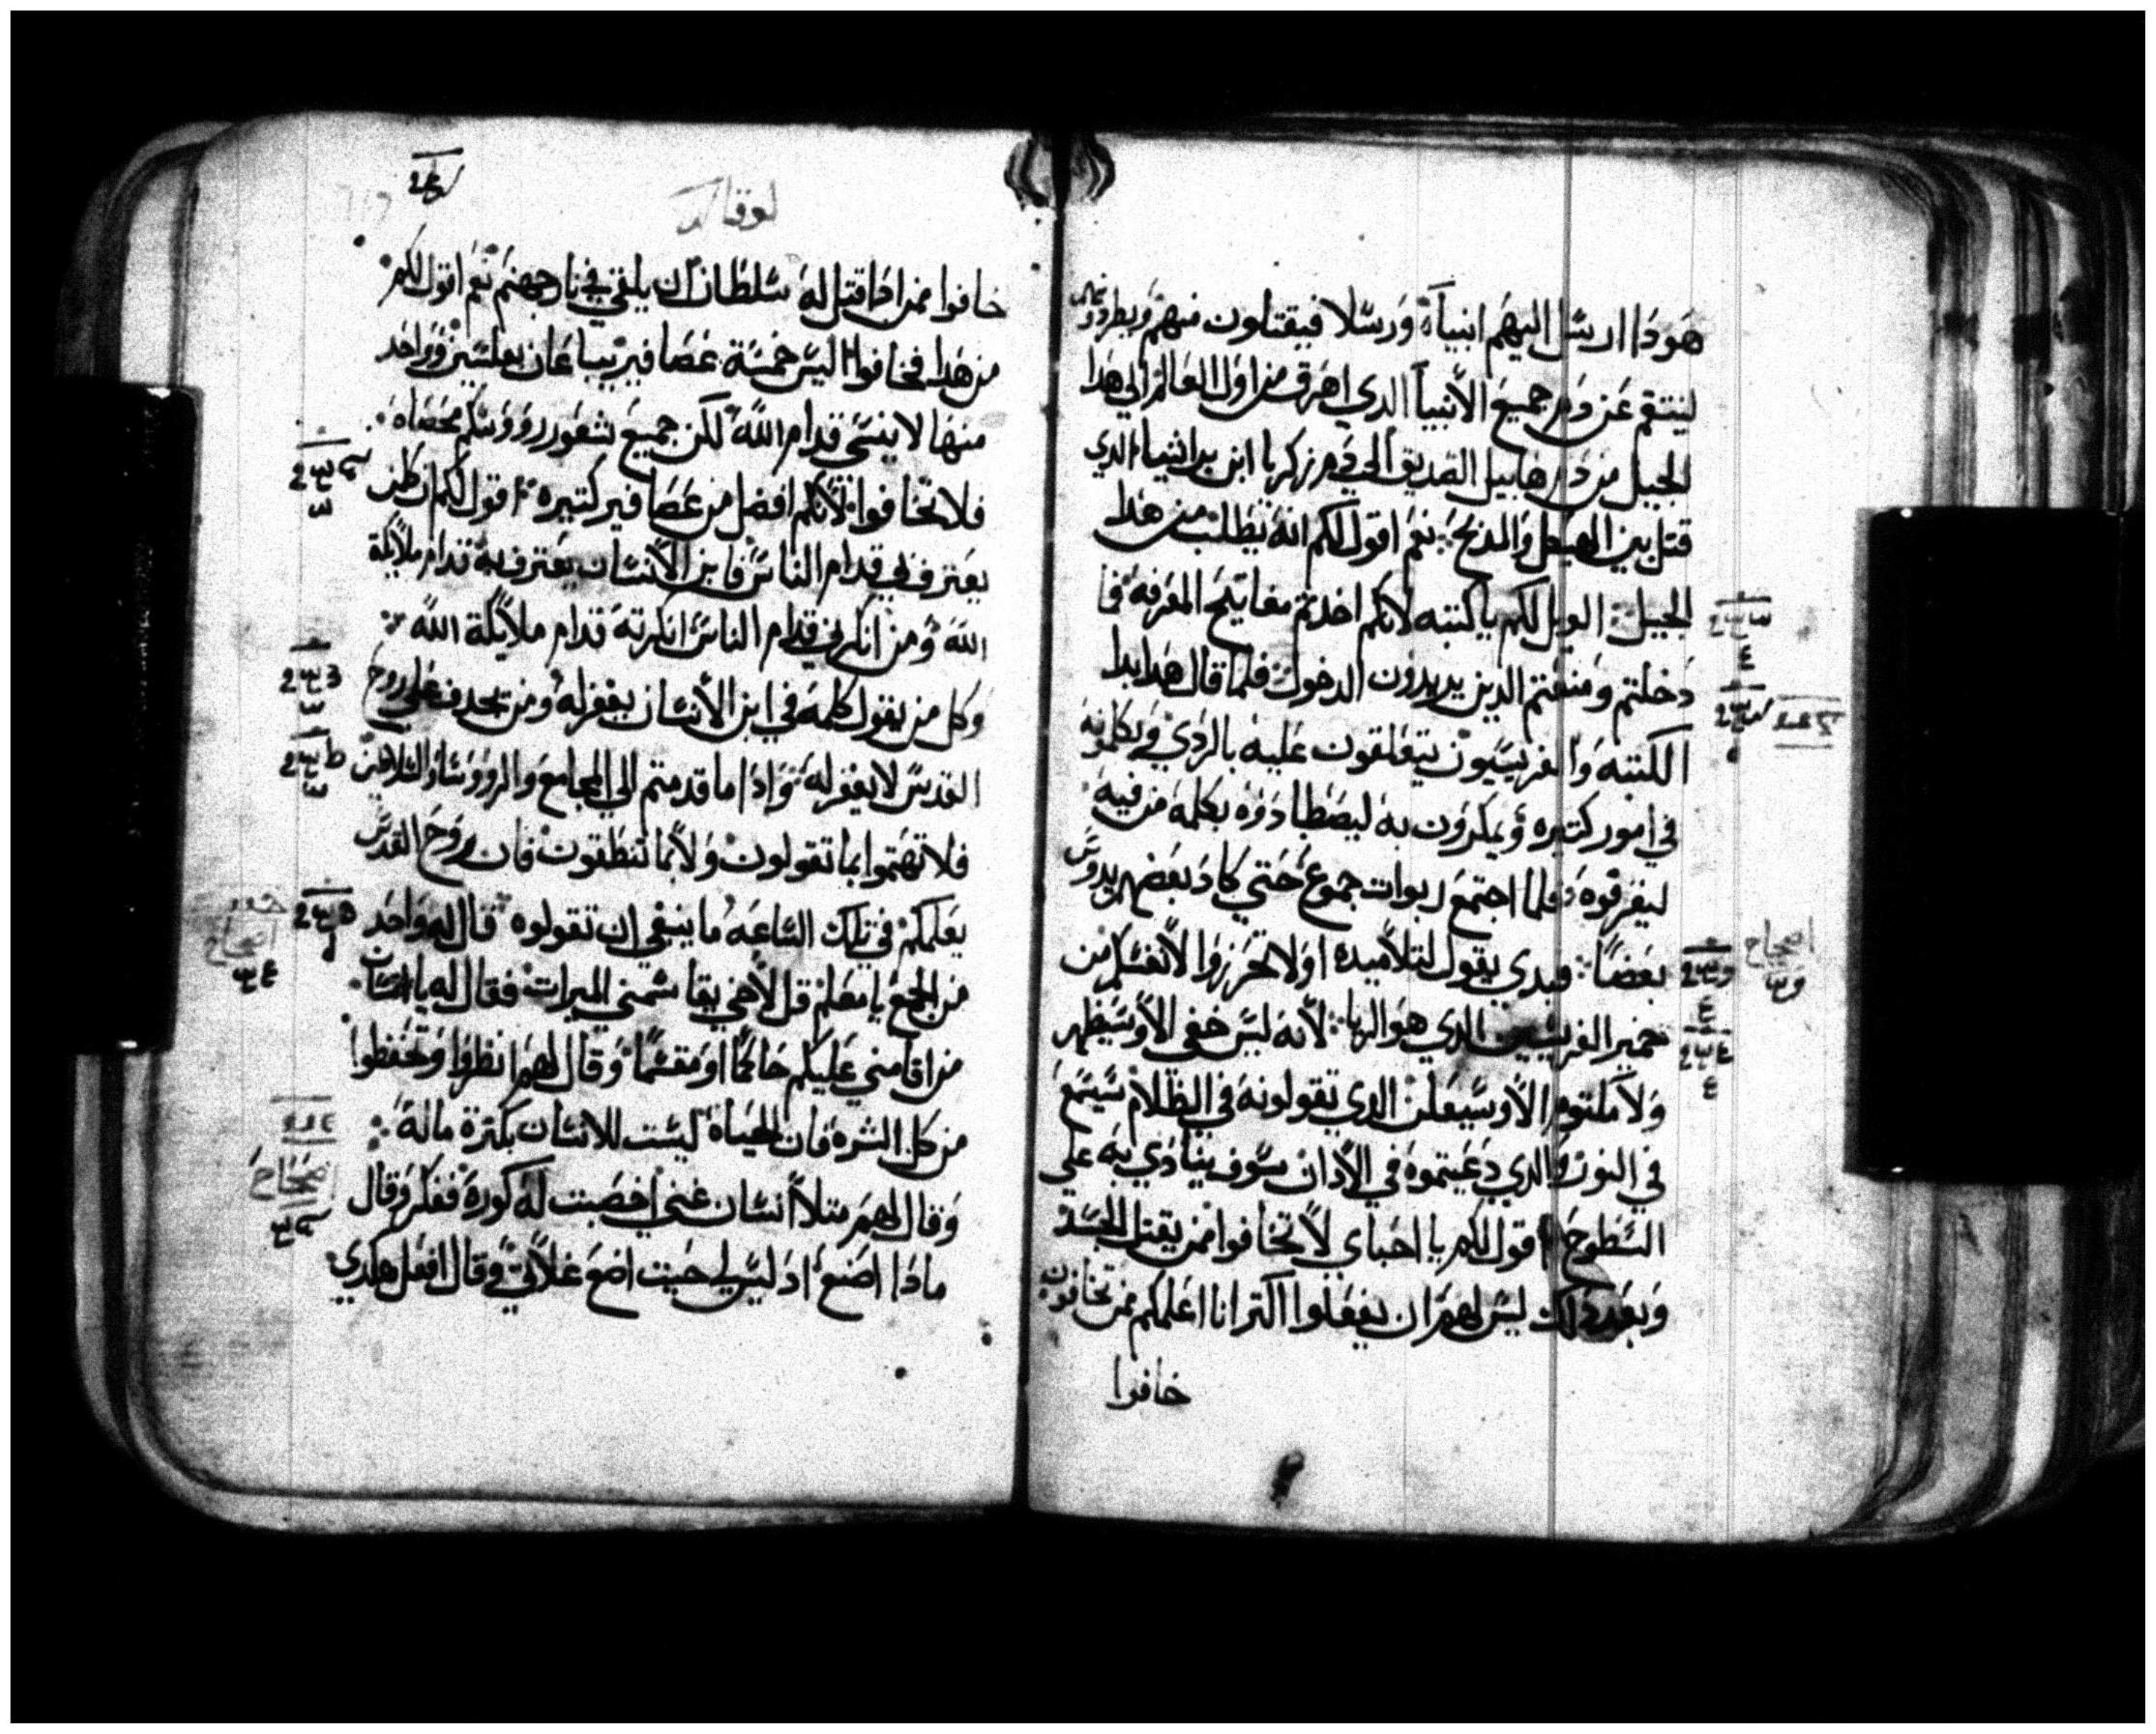 هوذا ارسل اليهم انبيآء ورسلا فيقتلون منهم ويطردون
لينتقم عن دم جميع الأنبيآ الدي اهرق من اول العالم الي هدا
الجيل من دم هابيل الصديق الي دم زكريا ابن براشيا الدي
قتل بين الهيكل والمدبح نعم اقول لكم انه يطلب من هدا
الجيل الويل لكم ياكتبه لانكم اخدتم مفاتيح المعرفه فما
دخلتم ومنعتم الدين يريدون الدخول فلما قال هدا بدا
الكتبه والفريسيون يتعلقون عليه بالردي ويكلمونه
في امور كتيره ويمكرون به ليصطادوه بكلمه من فيه
ليقرفوه فلما اجتمع ربوات جموع حتي كاد بعضهم يدوس
بعضا فبدي يقول لتلاميده اولا تحرزوا لأنفسكم من
خمير الفريسيين الدي هو الريا لأنه ليس خفي الا وسيظهر
ولا مكتوم الا وسيعلن الدي تقولونه في الظلام سيسمع
في النور والدي دعيتموه في الأدان سوف ينادي به علي
السطوح اقول لكم يا احباي لا تخافوا ممن يقتل الجسد
وبعد دلك ليس لهم ان يفعلوا اكتر انا اعلمكم ممن تخافون
خافوا
لوقا
خافوا ممن ادا قتل له سلطان ان يلقي في نار جهنم نعم اقول لكم
من هدا فخافوا اليس خمسة عصافير يباعان بفلسين وواحد
منها لا ينسي قدام الله لكن جميع شعور رووسكم محصاه
فلا تخافوا لأنكم افضل من عصافير كتيره اقول لكم ان كلمن
يعترف بي قدام الناس فابن الأنسان يعترف به قدام ملايكة
الله ومن انكرني قدام الناس انكرته قدام ملايكة الله
وكل من يقول كلمه في ابن الأنسان يغفر له ومن يجدف علي روح
القدس لا يغفر له وادا ما قدمتم الي المجامع والرووسا والسلاطين
فلا تهتموا بما تقولون ولا بما تنطقون فان روح القدس
يعلمكم في تلك الساعه ما ينبغي ان تقولوه قال له واحد
من الجمع يا معلم قل لأخي يقاسمني الميرات فقال له يا انسان
من اقامني عليكم حاكما او مقسما وقال لهم انظروا وتحفظوا
من كل الشره فان الحياه ليست للانسان بكترة ماله
وقال لهم متلا انسان غني اخصبت له كوره ففكر وقال
مادا اصنع اد ليس لي حيت اضع غلاتي وقال افعل هكدي